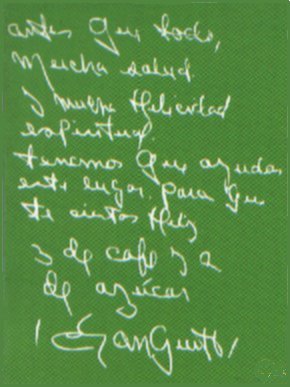 antes que todo,
mucha salud.
y mucha felicidad
espiritual.
tenemos que ayudar
este lugar. para que
te sientas feliz
y de café y a
de azúcar